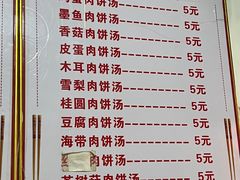 蛋肉饼汤 5元
墨鱼肉饼汤 5元
香菇肉饼汤 5元
皮蛋肉饼汤 5元
木耳肉饼汤 5元
雪梨肉饼汤 5元
桂圆肉饼汤 5元
豆腐肉饼汤 5元
海带肉饼汤 5元
肉饼汤 5元
茶树菇肉饼汤 5元